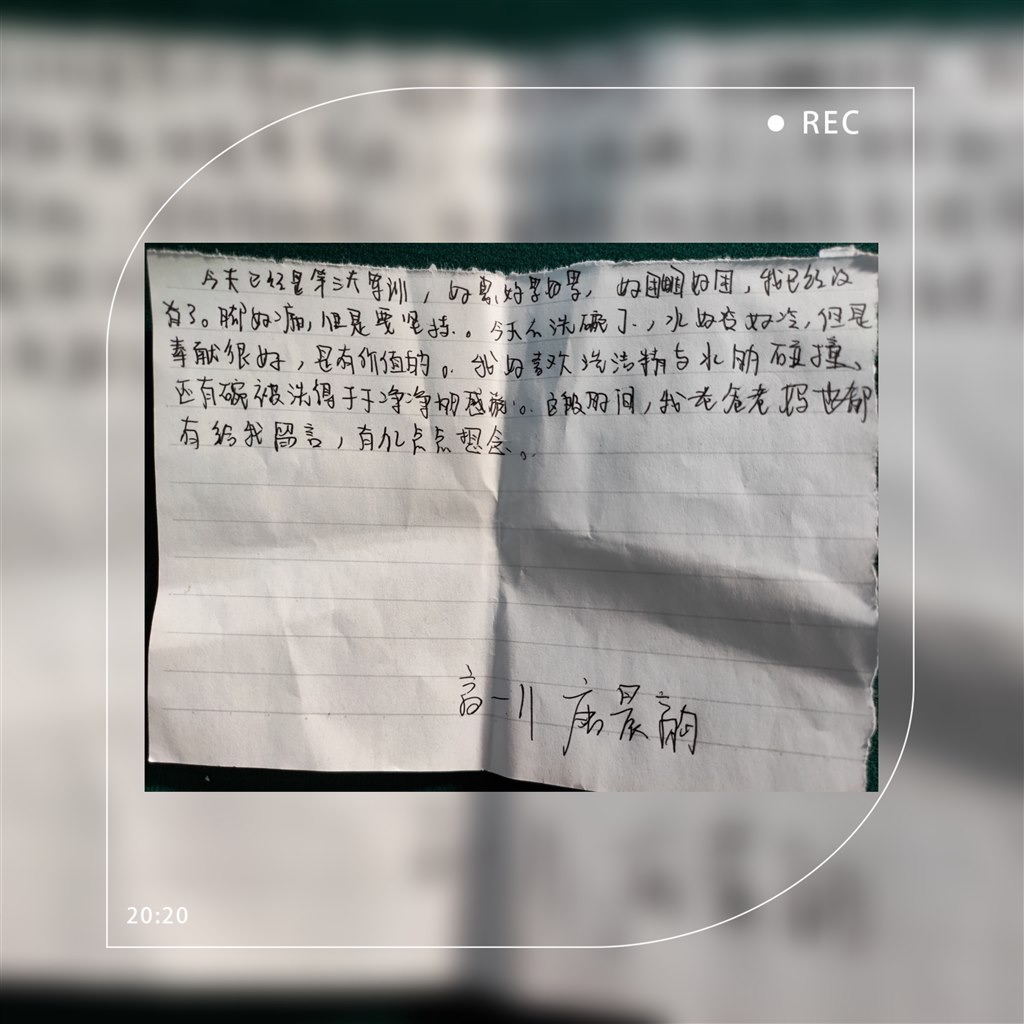 REC
今天已经是第三天军训，好累好累好累，好困啊好困，我已经没
有了。脚好痛，但是要坚持。今天去洗碗了，水好冷好冷，但是
奉献很好，是有价值的。我好喜欢洗洁精与水的碰撞、
还有碗被洗得干干净净的感觉。这段时间，我老爸老妈也都
有给我留言，有几点点想念。
高一11 唐晨
20:20